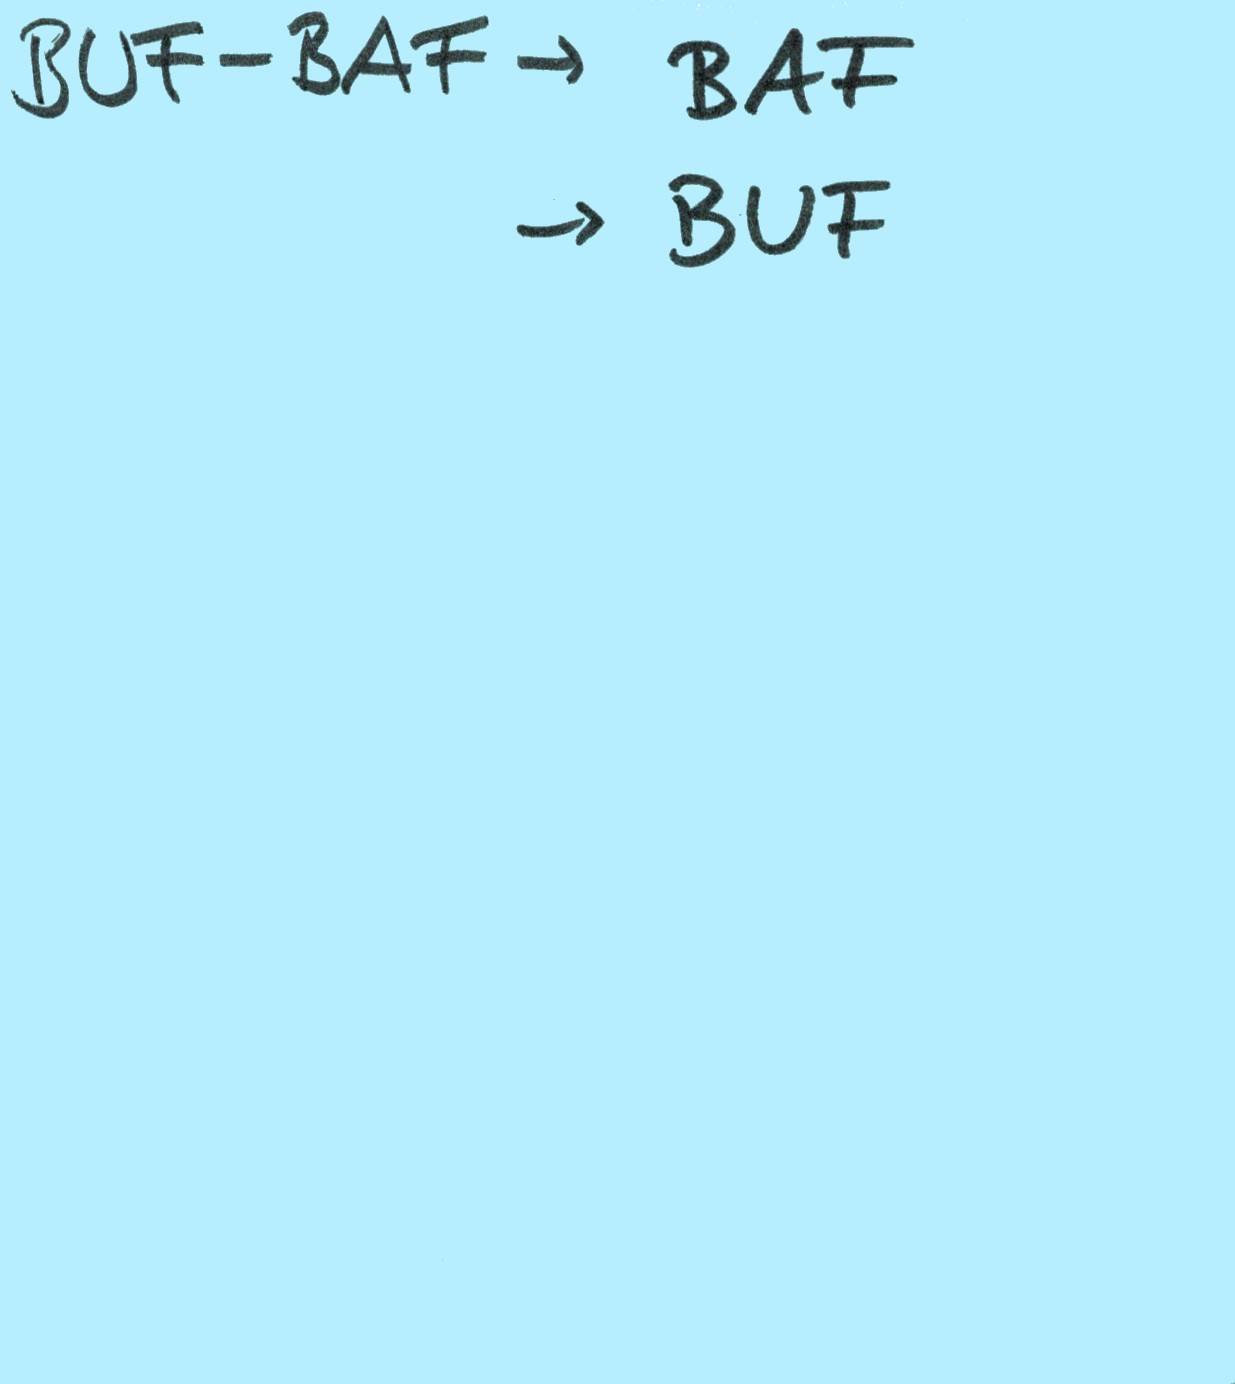 BUF-BAF → BAF
→ BUF